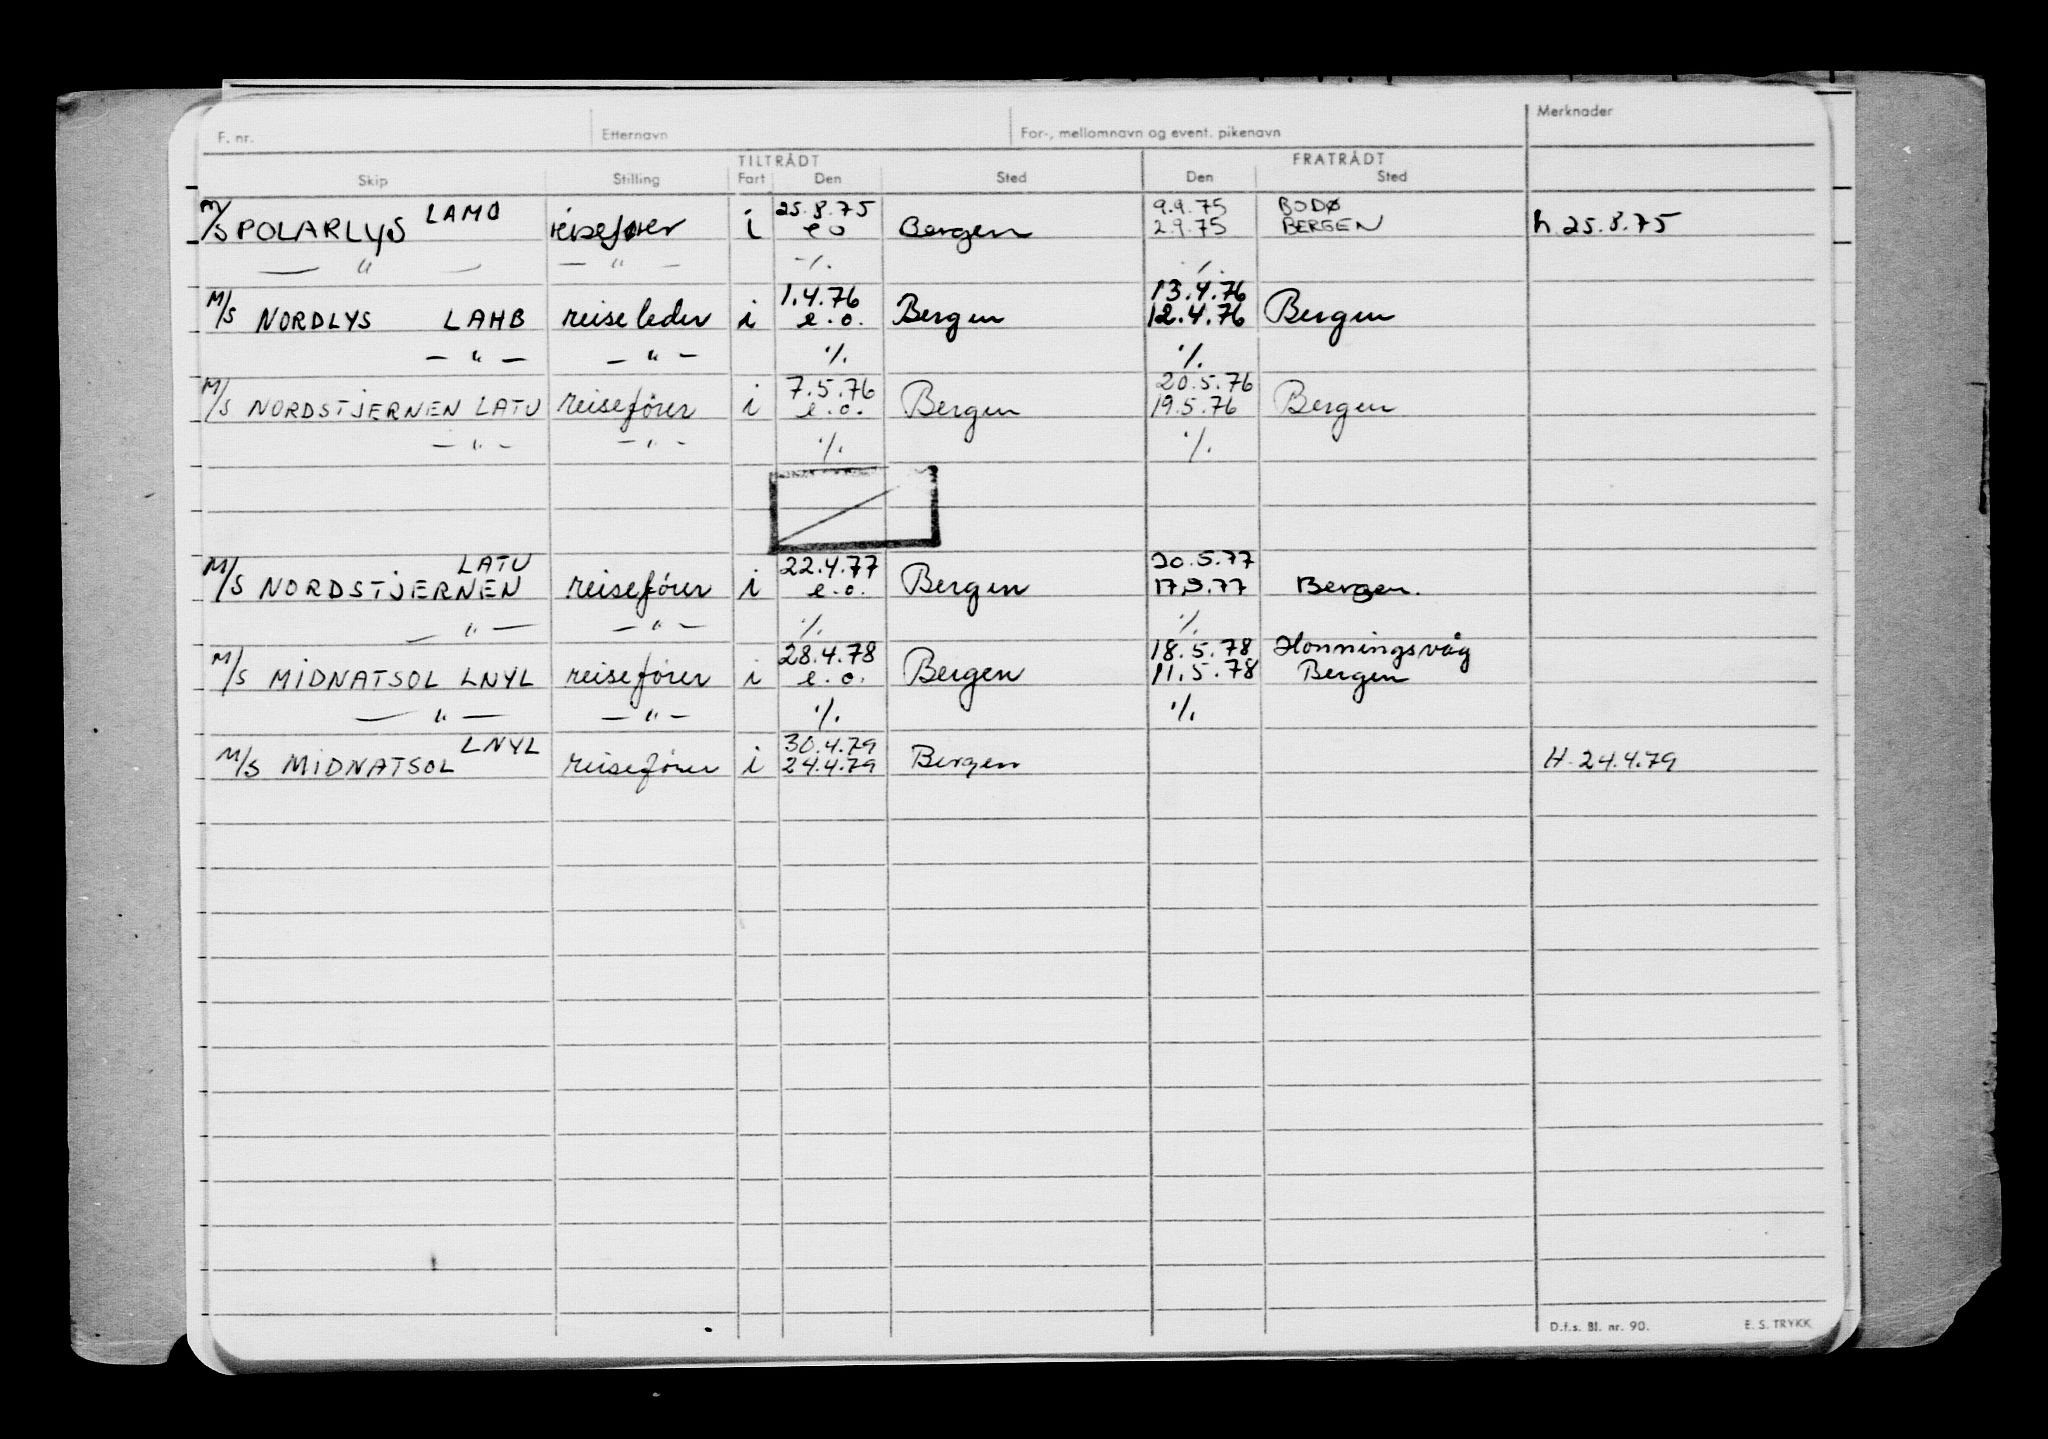 F. nr. Etternavn For-, mellomnavn og event. pikenavn Merknader
TILTRÅDT FRATRÅDT
Skip Stilling Fart Den Sted Den Sted
M/S POLARLYS LAMO reisefører i 25.8.75 e o Bergen 9.9.75 BODØ h. 25.8.75
2.9.75 BERGEN
— " — — " — ·/. ·/.
M/S NORDLYS LAHB reiseleder i 1.4.76 e.o. Bergen 13.4.76
12.4.76 Bergen
— " — — " — ·/. ·/.
M/S NORDSTJERNEN LATU reisefører i 7.5.76 e.o. Bergen 20.5.76
19.5.76 Bergen
— " — — " — ·/. ·/.
M/S NORDSTJERNEN LATU reisefører i 22.4.77 e.o. Bergen 20.5.77
17.5.77 Bergen.
— " — — " — ·/. ·/.
M/S MIDNATSOL LNYL reisefører i 28.4.78 e.o. Bergen 18.5.78 Honningsvåg
11.5.78 Bergen
— " — — " — ·/. ·/.
M/S MIDNATSOL LNYL reisefører i 30.4.79
24.4.79 Bergen H. 24.4.79
D.f.s. Bl. nr. 90. E. S. TRYKK